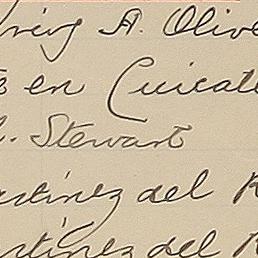 Irving A. Olive
en Cuicatl
. Stewart
artínez del R
artínez del R